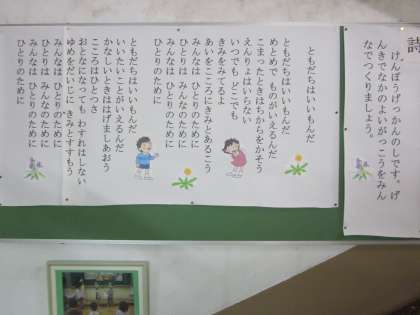 詩
けんぽうげっかんのしです。げ
んきでなかのよいがっこうをみん
なでつくりましょう。
ともだちはいいもんだ
ともだちはいいもんだ
めとめで ものがいえるんだ
こまったときはちからをかそう
えんりょはいらない
いつでも どこでも
きみをみてるよ
あいをこころにきみとあるこう
みんなは ひとりのために
ひとりは みんなのために
みんなは ひとりのために
ひとりのために
ともだちはいいもんだ
いいたいことがいえるんだ
かなしいときははげましあおう
こころはひとつさ
おとなになっても わすれはしない
ゆめをだいじに きみとすすもう
みんなは ひとりのために
ひとりは みんなのために
みんなは ひとりのために
ひとりのために